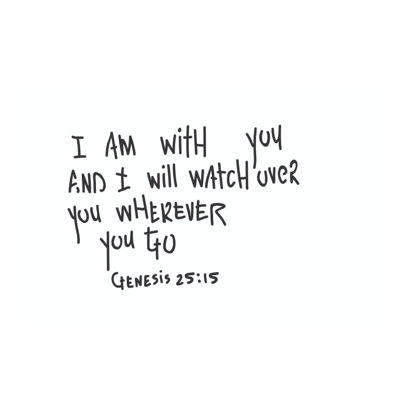 I AM with you
AND I will WATCH OVER
you WHEREVER
you GO
GENESIS 25:15